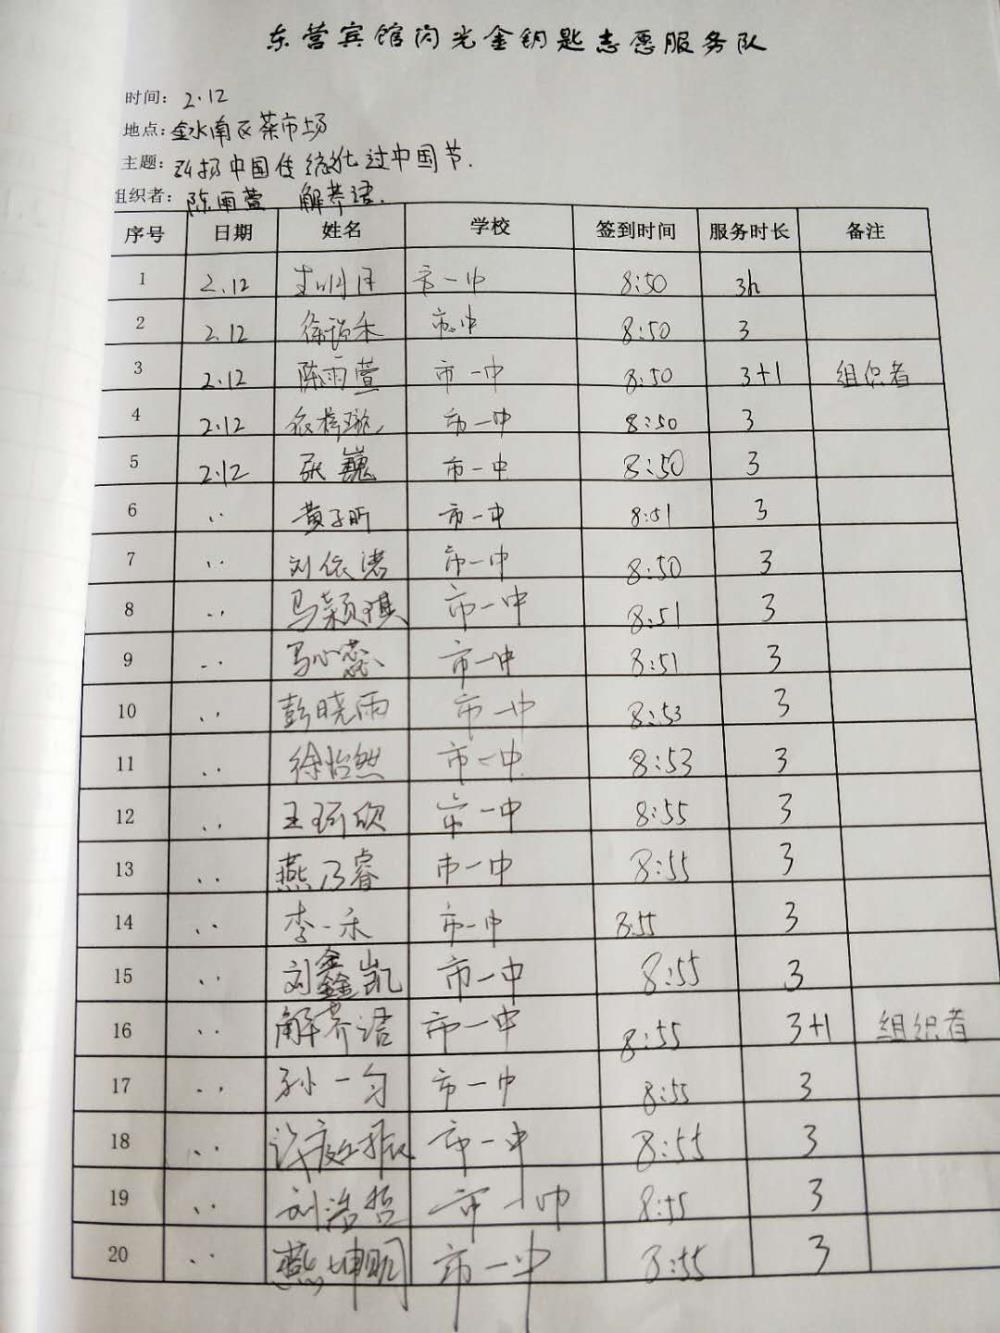 东营宾馆闪光金钥匙志愿服务队
时间: 2.12
地点: 金水南区菜市场
主题: 弘扬中国传统文化过中国节.
组织者: 陈雨萱 解荞语.
序号 日期 姓名 学校 签到时间 服务时长 备注
1 2.12 市一中 8:50 3h
2 2.12 市一中 8:50 3
3 2.12 陈雨萱 市一中 8:50 3+1 组织者
4 2.12 市一中 8:50 3
5 2.12 张巍 市一中 8:50 3
6 .. 黄子昕 市一中 8:51 3
7 .. 刘依诺 市一中 8:50 3
8 .. 马颖琪 市一中 8:51 3
9 .. 马心蕊 市一中 8:51 3
10 .. 彭晓雨 市一中 8:53 3
11 .. 徐怡然 市一中 8:53 3
12 .. 王珂欣 市一中 8:55 3
13 .. 燕乃睿 市一中 8:55 3
14 .. 李一禾 市一中 8:55 3
15 .. 刘鑫凯 市一中 8:55 3
16 .. 解荞语 市一中 8:55 3+1 组织者
17 .. 孙一匀 市一中 8:55 3
18 .. 许庭振 市一中 8:55 3
19 .. 刘浩哲 市一中 8:55 3
20 .. 燕坤明 市一中 8:55 3